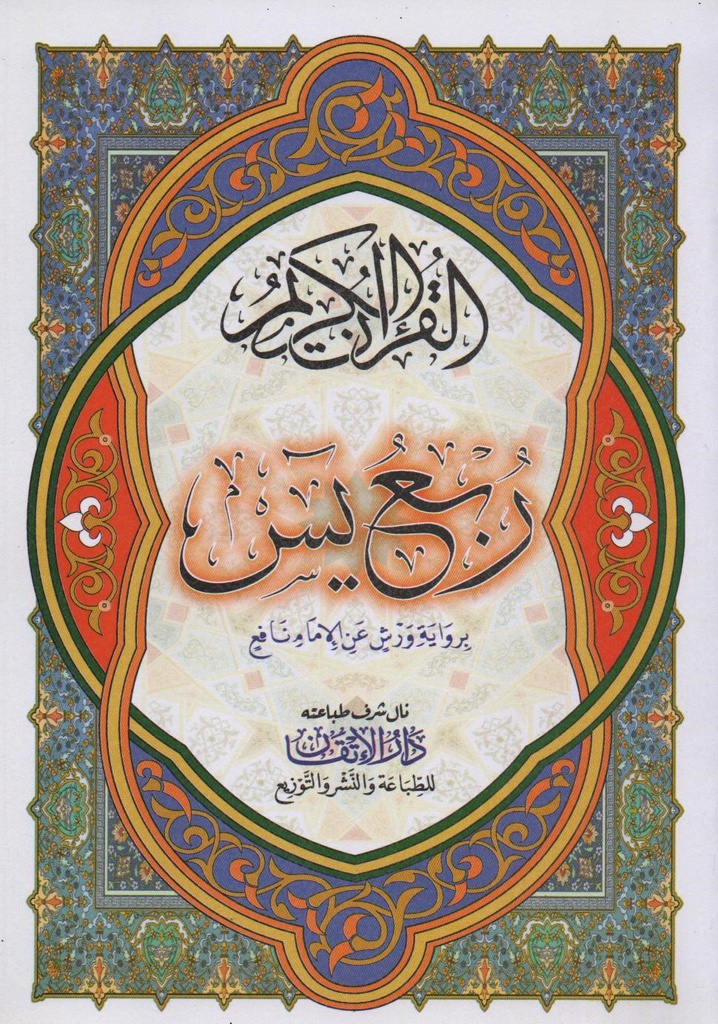 القرءان الكريم
رُبْعُ يسٓ
بِرِوَايَةِ وَرْشٍ عَنِ الإِمَامِ نَافِعٍ
نال شرف طباعته
دَارُ الإِتْقَان
لِلطِّبَاعَةِ وَالنَّشْرِ وَالتَّوْزِيعِ